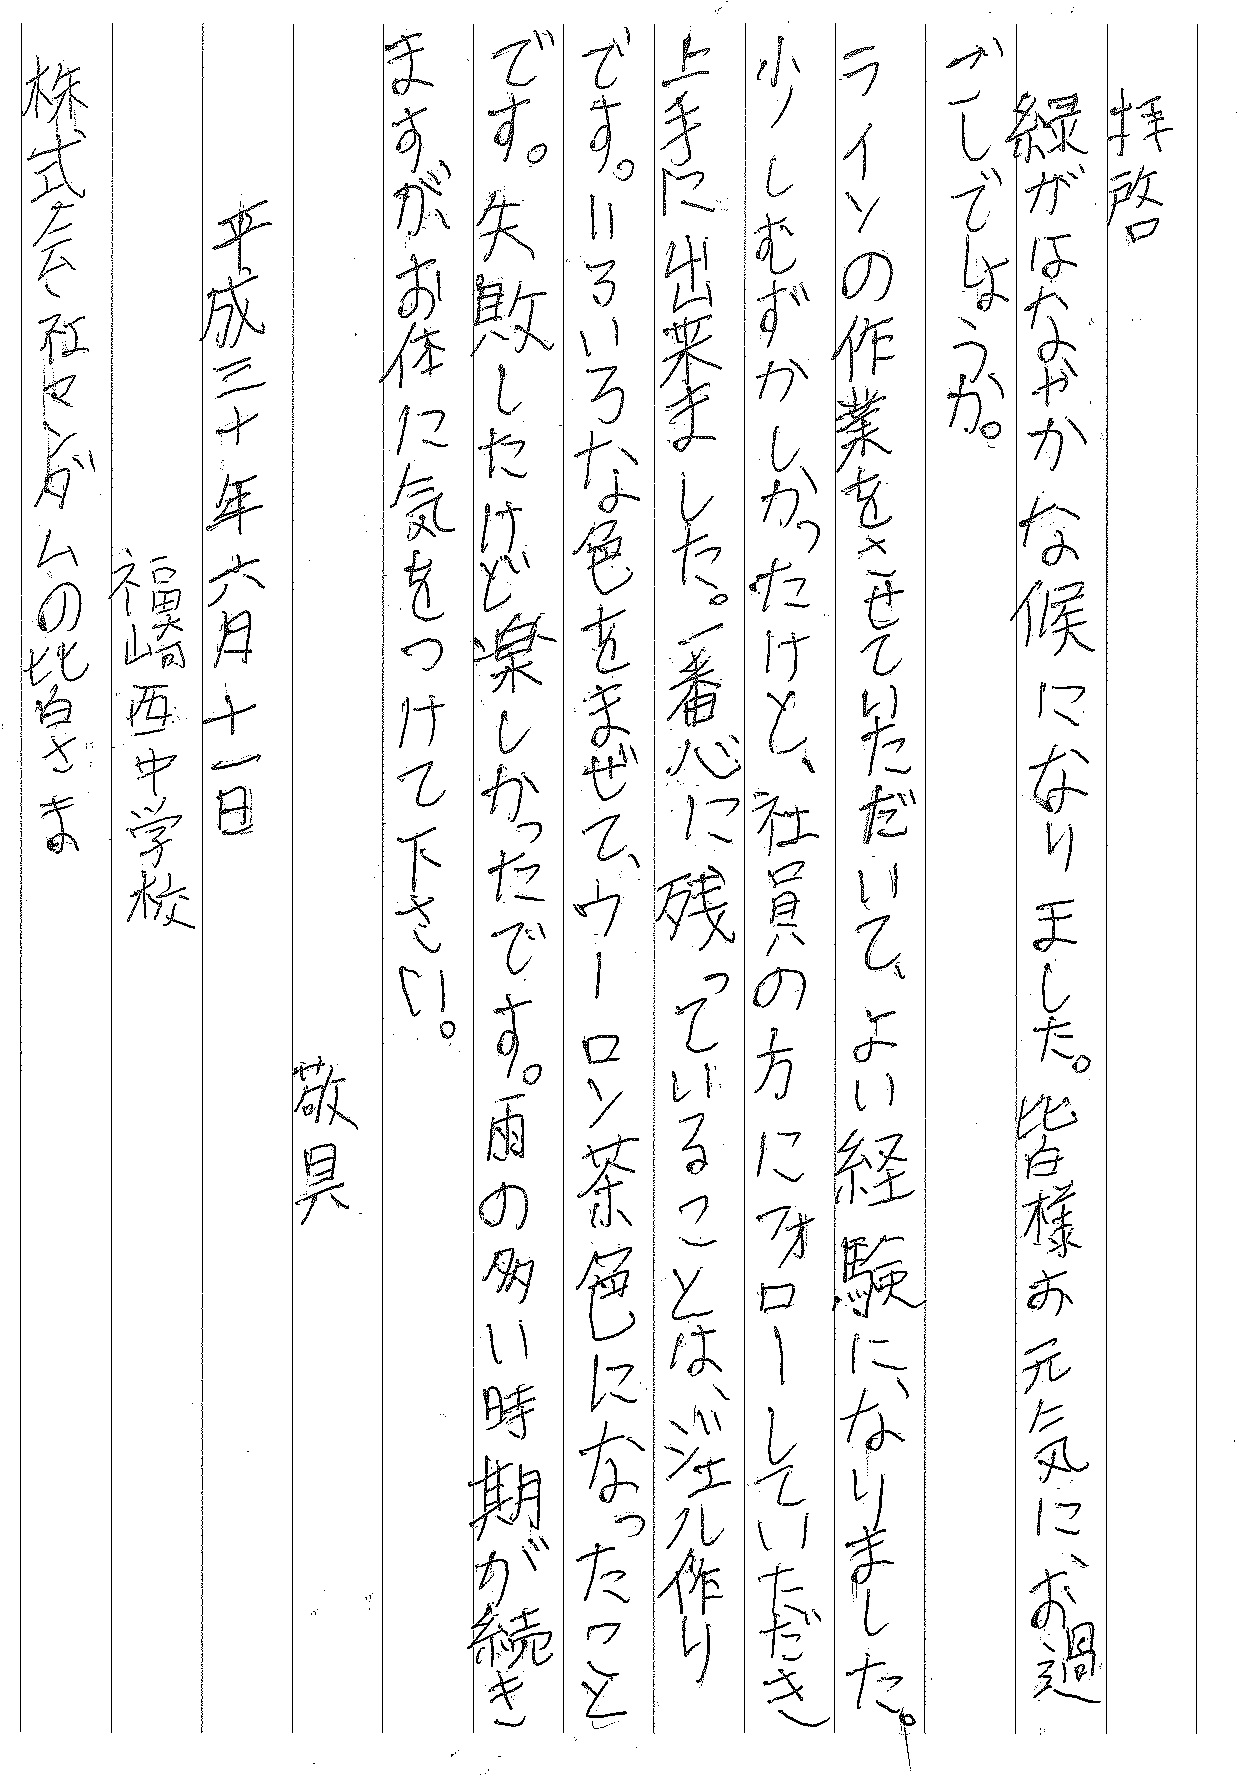 拝啓
緑がはなやかな候になりました。皆様お元気に、お過
ごしでしょうか。
ラインの作業をさせていただいて、よい経験に、なりました。
少しむずかしかったけど、社員の方にフォローしていただき
上手に出来ました。一番心に残っていることは、ジェル作り
です。いろいろな色をまぜて、ウーロン茶色になったこと
です。失敗したけど楽しかったです。雨の多い時期が続き
ますが、お体に気をつけて下さい。
敬具
平成三十年六月十一日
福崎西中学校
株式会社マンダムの皆さま